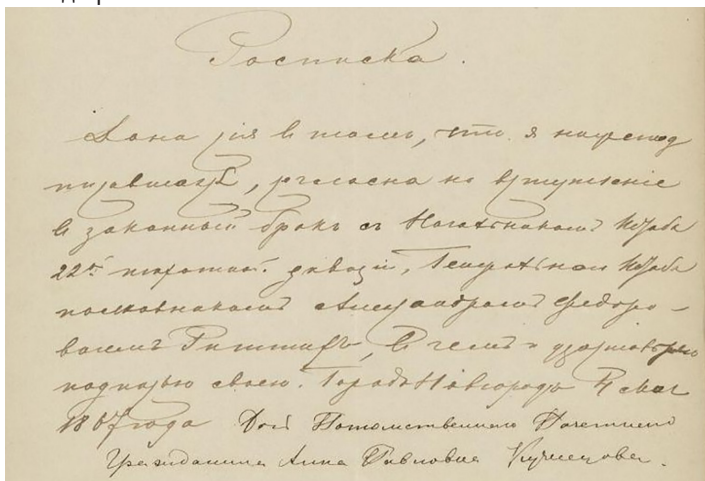 Росписка.
Дана сія въ томъ, что я нижепод
писавшаяся, согласна на вступленіе
въ законный бракъ съ Начальникомъ Штаба
22й пѣхотной дивизіи, Генеральнаго Штаба
полковникомъ Александромъ Федоро-
вичемъ Риттихъ, въ чемъ и удостовѣряю
подписью своею. Городъ Новгородъ
18 года Дочь Потомственнаго Почетнаго
Гражданина Анна Павловна Кузнецова.